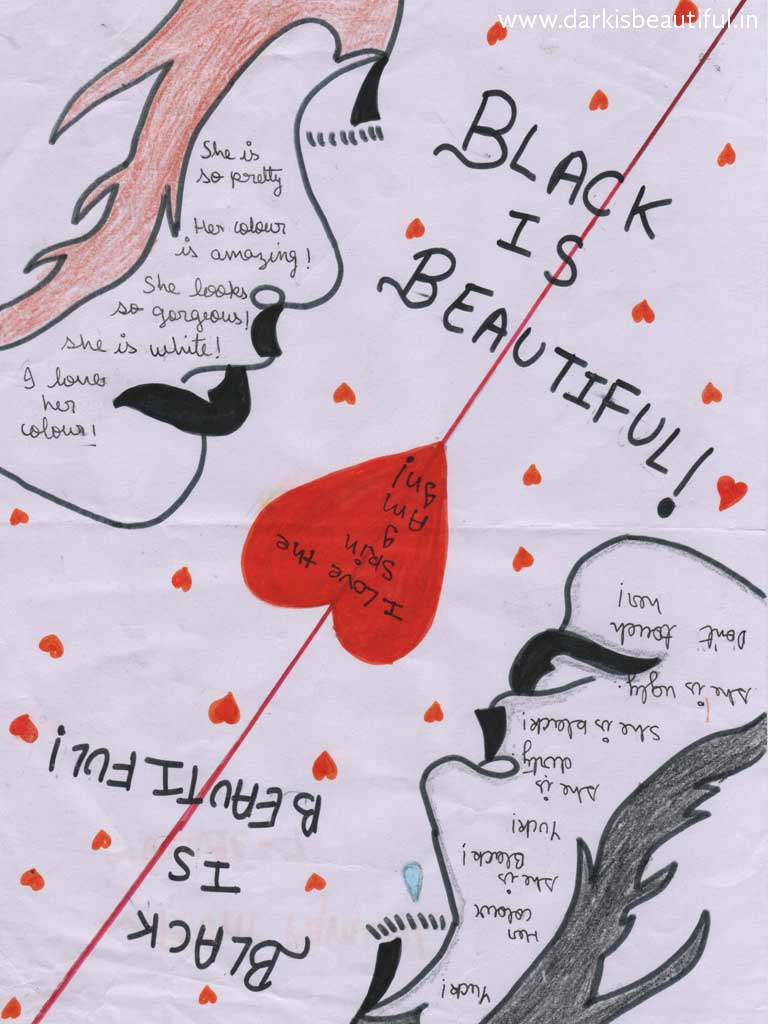 www.darkisbeautiful.in
BLACK
IS
BEAUTIFUL!
She is
so pretty
Her colour
is amazing!
She looks
so gorgeous!
She is white!
I love
her
colour!
I Love the
skin
I
Am
In!
Don't touch
her!
She is ugly!
She is black!
She is
dirty!
Yuck!
She is
Black!
Her
colour
Yuck!
BLACK
IS
BEAUTIFUL!